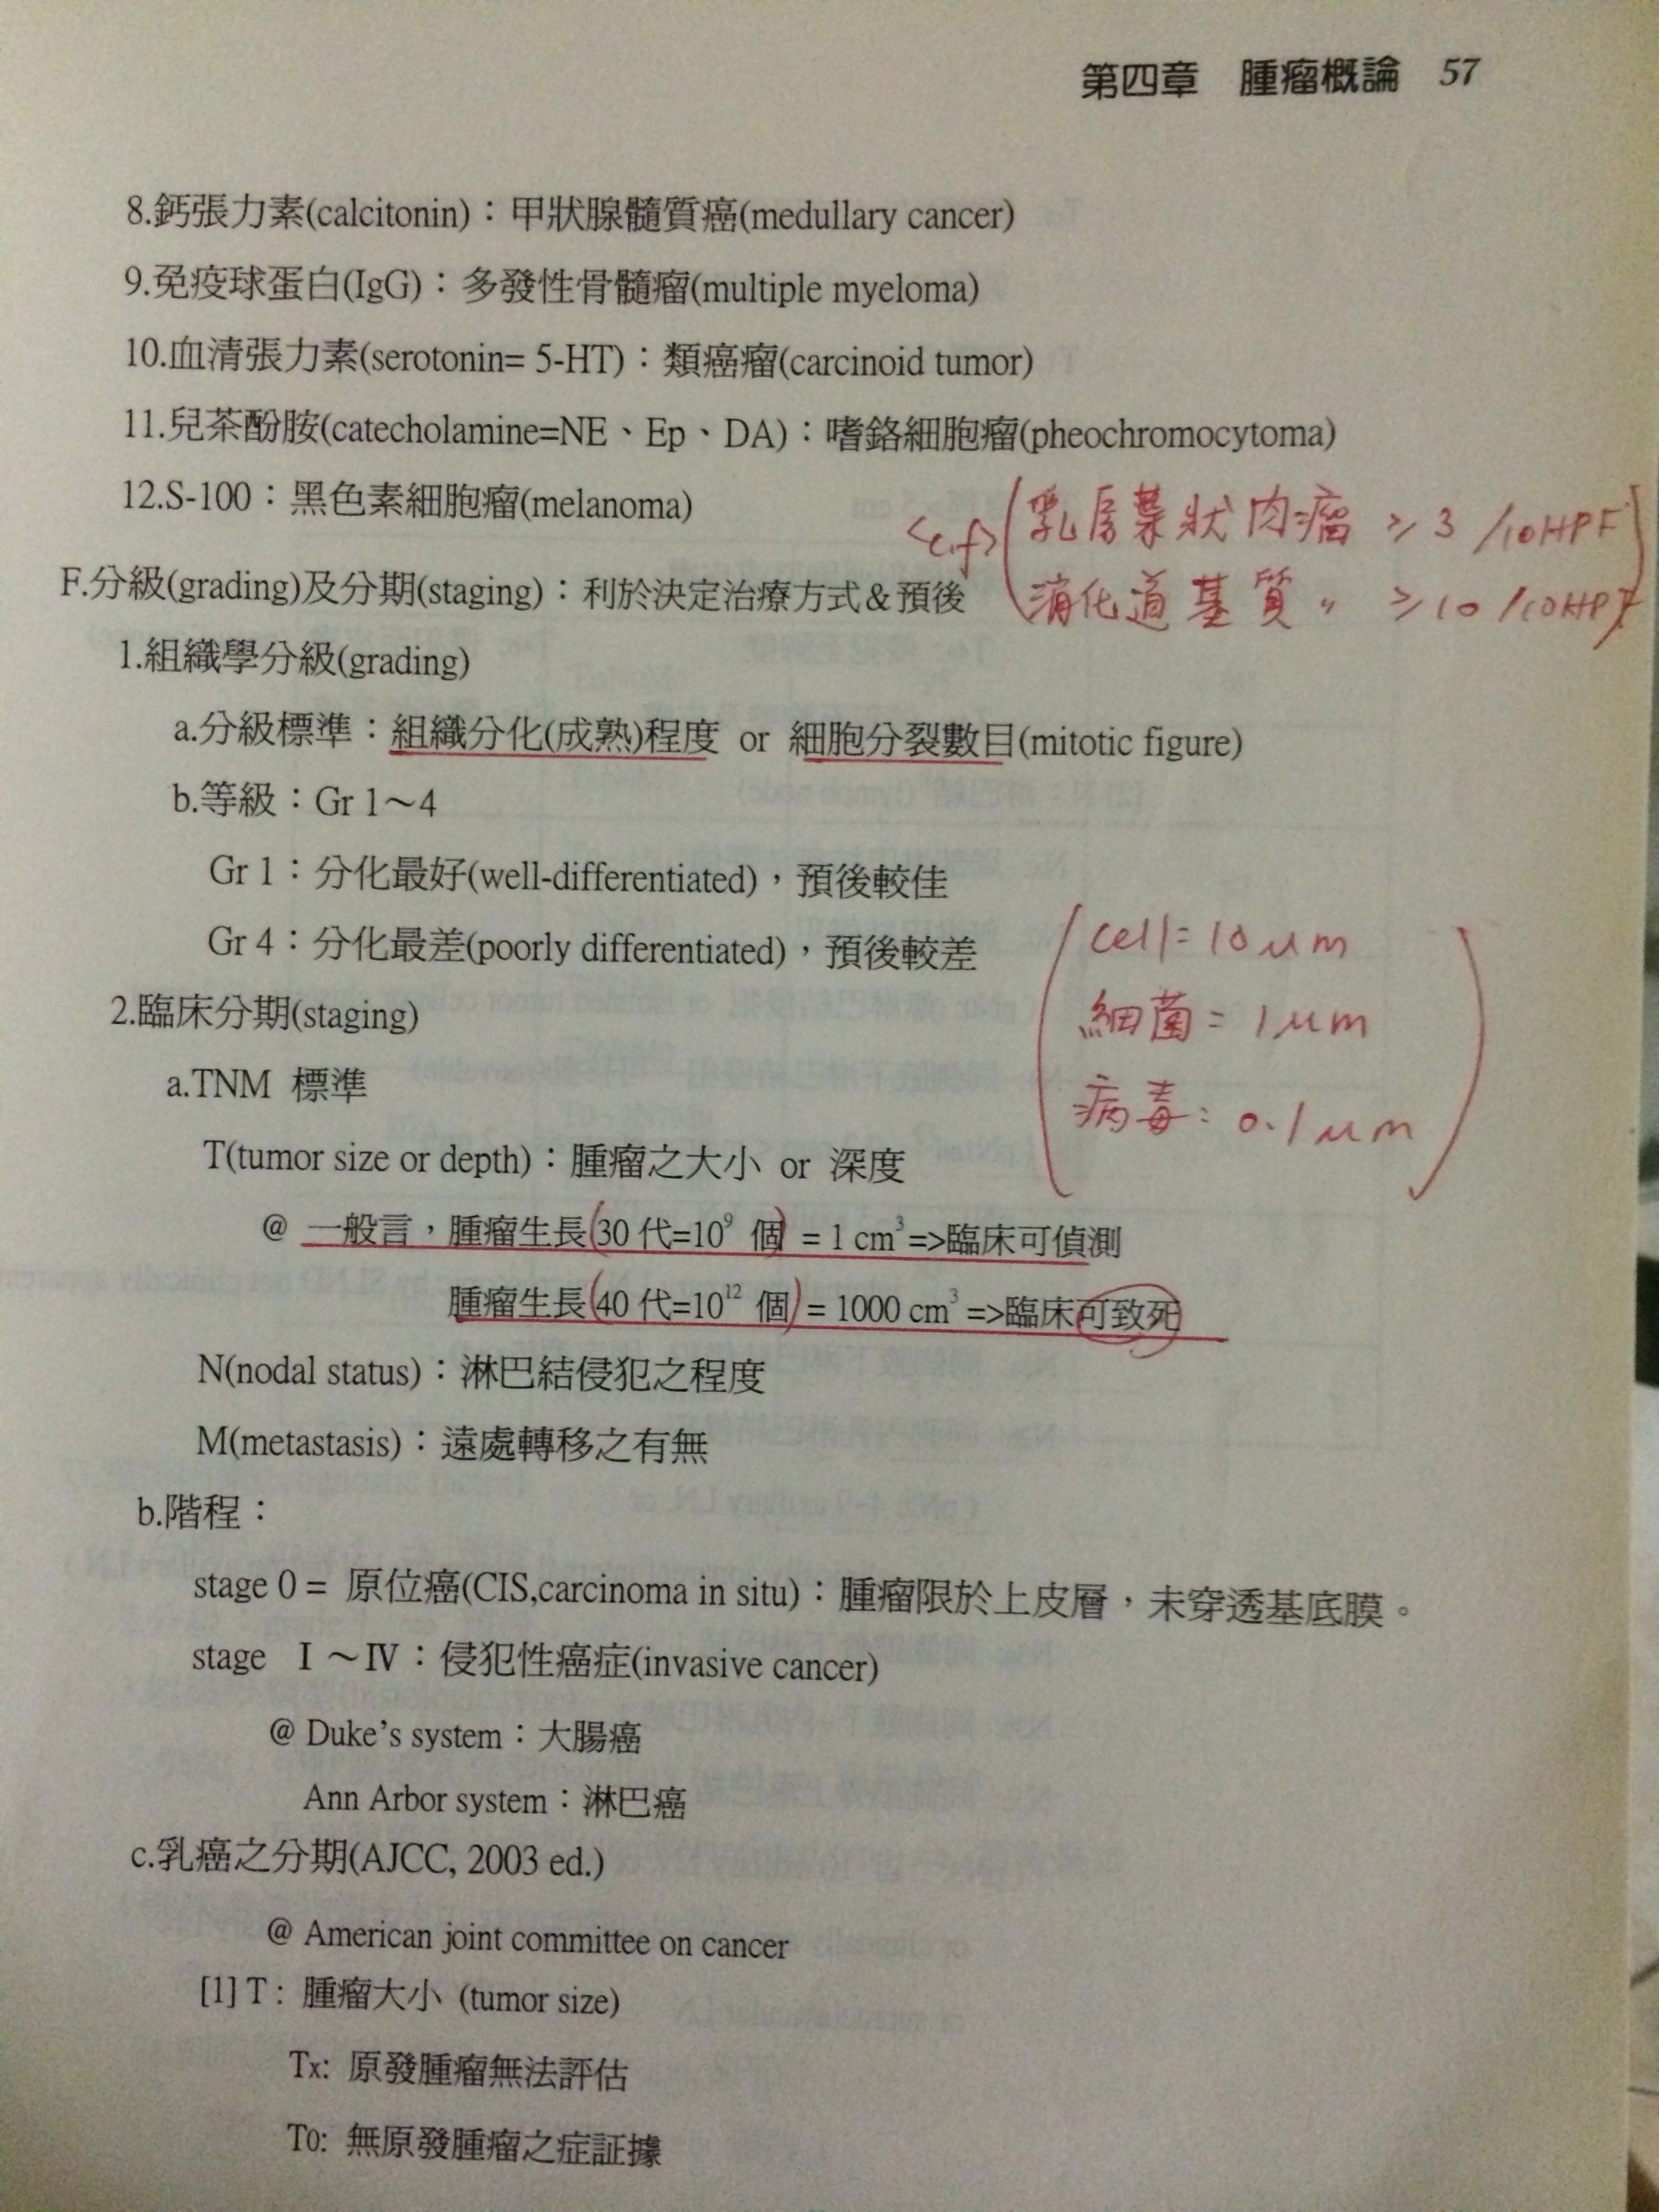 第四章　腫瘤概論　57
8.鈣張力素(calcitonin)：甲狀腺髓質癌(medullary cancer)
9.免疫球蛋白(IgG)：多發性骨髓瘤(multiple myeloma)
10.血清張力素(serotonin= 5-HT)：類癌瘤(carcinoid tumor)
11.兒茶酚胺(catecholamine=NE、Ep、DA)：嗜鉻細胞瘤(pheochromocytoma)
12.S-100：黑色素細胞瘤(melanoma)
<c.f> (乳房葉狀肉瘤 ≥ 3 /10HPF
消化道基質 〃 ≥10 /10HPF)
F.分級(grading)及分期(staging)：利於決定治療方式＆預後
1.組織學分級(grading)
a.分級標準：組織分化(成熟)程度 or 細胞分裂數目(mitotic figure)
b.等級：Gr 1～4
Gr 1：分化最好(well-differentiated)，預後較佳
Gr 4：分化最差(poorly differentiated)，預後較差
(cell= 10 μm
細菌= 1 μm
病毒: 0.1 μm)
2.臨床分期(staging)
a.TNM 標準
T(tumor size or depth)：腫瘤之大小 or 深度
@ 一般言，腫瘤生長(30 代=10⁹ 個) = 1 cm³=>臨床可偵測
腫瘤生長(40 代=10¹² 個) = 1000 cm³ =>臨床可致死
N(nodal status)：淋巴結侵犯之程度
M(metastasis)：遠處轉移之有無
b.階程：
stage 0 = 原位癌(CIS,carcinoma in situ)：腫瘤限於上皮層，未穿透基底膜。
stage Ⅰ～Ⅳ：侵犯性癌症(invasive cancer)
@ Duke's system：大腸癌
Ann Arbor system：淋巴癌
c.乳癌之分期(AJCC, 2003 ed.)
@ American joint committee on cancer
[1] T : 腫瘤大小 (tumor size)
Tx: 原發腫瘤無法評估
T0: 無原發腫瘤之症証據